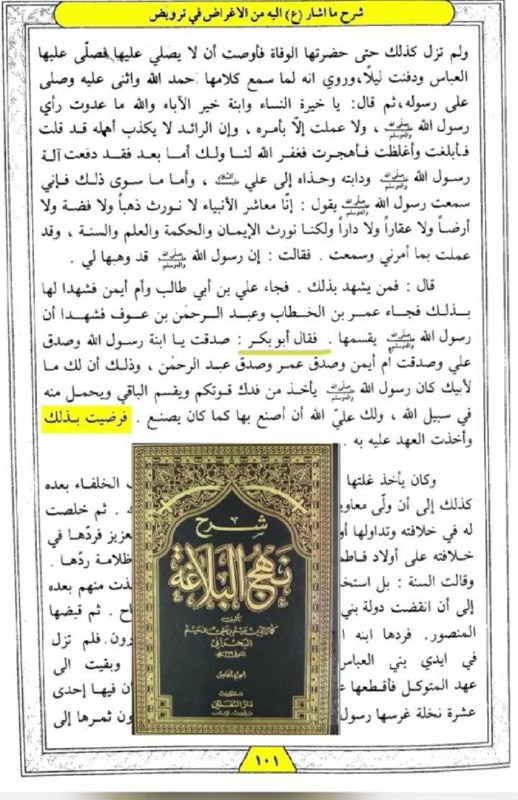 شرح ما اشار (ع) اليه من الاغراض في ترويض
ولم تزل كذلك حتى حضرتها الوفاة فأوصت أن لا يصلي عليها فصلّى عليها
العباس ودفنت ليلًا، وروي انه لما سمع كلامها حمد الله واثنى عليه وصلى
على رسوله، ثم قال: يا خيرة النساء وابنة خير الآباء والله ما عدوت رأي
رسول الله صلى الله عليه وآله وسلم، ولا عملت إلّا بأمره، وإن الرائد لا يكذب أهله قد قلت
فأبلغت وأغلظت فأهجرت فغفر الله لنا ولك أما بعد فقد دفعت آلة
رسول الله صلى الله عليه وآله وسلم ودابته وحذاه إلى علي عليه السلام، وأما ما سوى ذلك فإني
سمعت رسول الله صلى الله عليه وآله وسلم يقول: إنّا معاشر الأنبياء لا نورث ذهباً ولا فضة ولا
أرضاً ولا عقاراً ولا داراً ولكنا نورث الإيمان والحكمة والعلم والسنة، وقد
عملت بما أمرني وسمعت. فقالت: إن رسول الله صلى الله عليه وآله وسلم قد وهبها لي.
قال: فمن يشهد بذلك. فجاء علي بن أبي طالب وأم أيمن فشهدا لها
بذلك فجاء عمر بن الخطاب وعبد الرحمٰن بن عوف فشهدا أن
رسول الله صلى الله عليه وآله وسلم يقسمها. فقال أبو بكر: صدقت يا ابنة رسول الله وصدق
علي وصدقت أم أيمن وصدق عمر وصدق عبد الرحمٰن، وذلك أن لك ما
لأبيك كان رسول الله صلى الله عليه وآله وسلم يأخذ من فدك قوتكم ويقسم الباقي ويحمل منه
في سبيل الله، ولك عليّ الله أن أصنع بها كما كان يصنع. فرضيت بذلك
وأخذت العهد عليه به.
وكان يأخذ غلتها
ب الخلفاء بعده
كذلك إلى أن ولّى معاوي
. ثم خلصت
له في خلافته وتداولها أو
عزيز فردّها في
خلافته على أولاد فاطم
ظلامة ردّها.
وقالت السنة: بل استخ
ذت منهم بعده
إلى أن انقضت دولة بني
اح. ثم قبضها
المنصور. فردها ابنه ا
رون. فلم تزل
في ايدي بني العباس
وبقيت الى
عهد المتوكل فأقطعها ع
ن فيها إحدى
عشرة نخلة غرسها رسول
ون ثمرها إلى
شرح
نهج البلاغة
تأليف
كمال الدين ميثم بن علي بن ميثم
البحراني
الجزء الخامس
دار الثقلين
١٠١